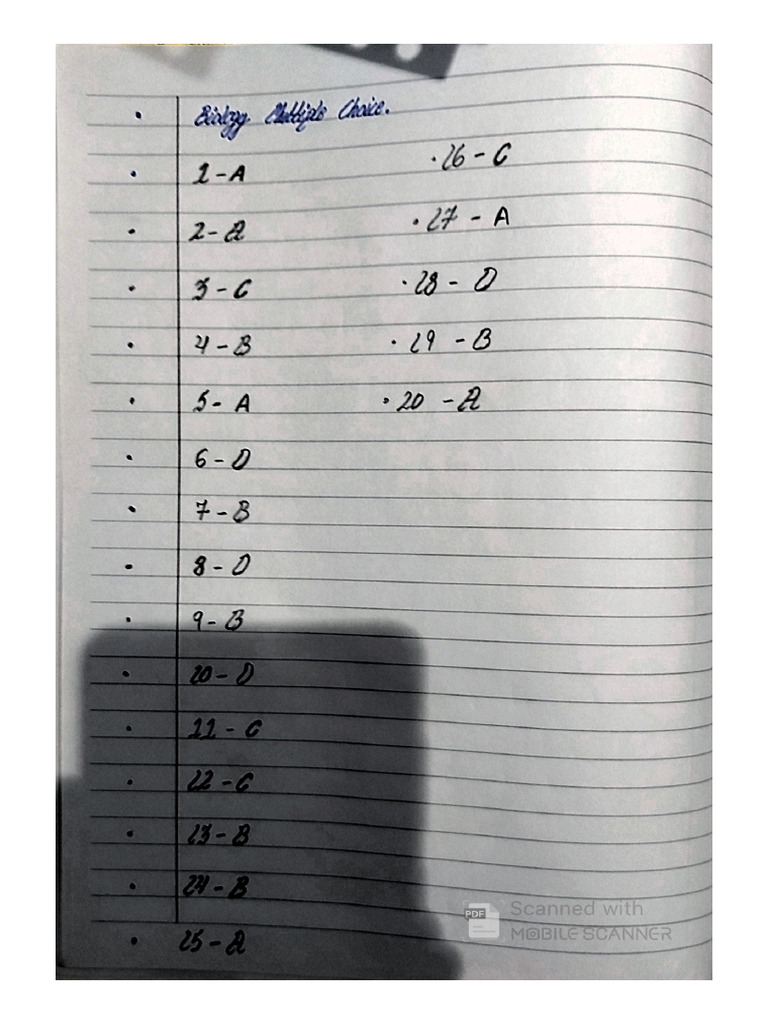 Biology Multiple Choice.
1 - A
2 - A
3 - C
4 - B
5 - A
6 - D
7 - B
8 - D
9 - B
10 - D
11 - C
12 - C
13 - B
14 - B
15 - A
16 - C
17 - A
18 - D
19 - B
20 - A
PDF Scanned with
MOBILE SCANNER